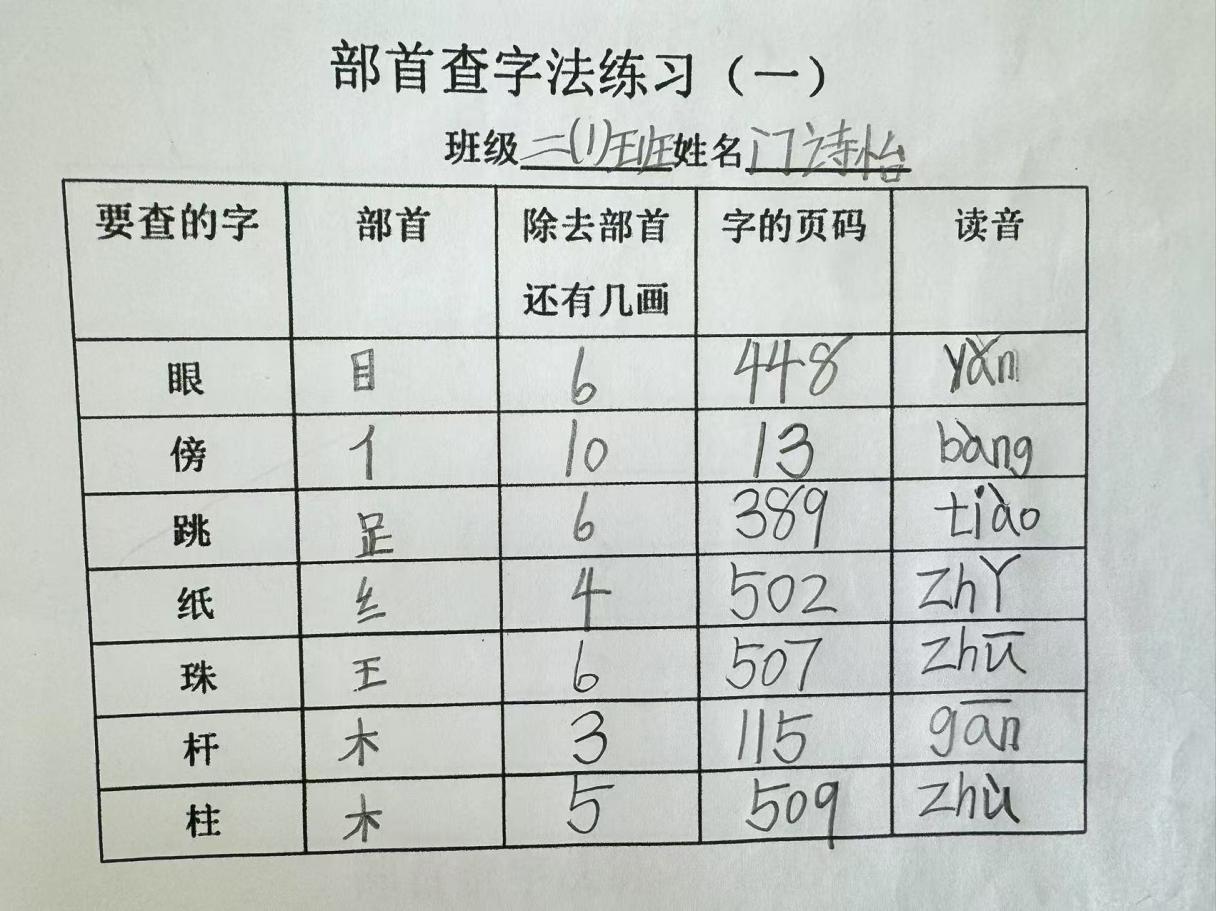 部首查字法练习（一）
班级二(1)班姓名门诗怡
要查的字 部首 除去部首还有几画 字的页码 读音
眼 目 6 448 yǎn
傍 亻 10 13 bàng
跳 足 6 389 tiào
纸 纟 4 502 zhǐ
珠 王 6 507 zhū
杆 木 3 115 gān
柱 木 5 509 zhù